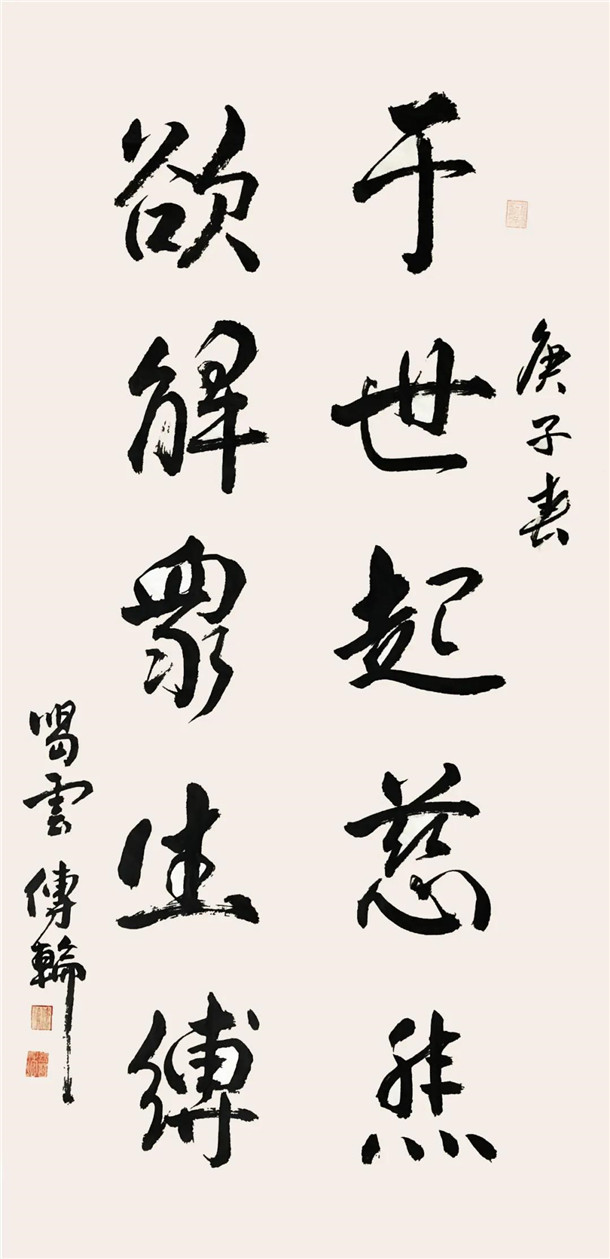 庚子春
于世起慈悲
欲解眾生縛
喝雲傳輪